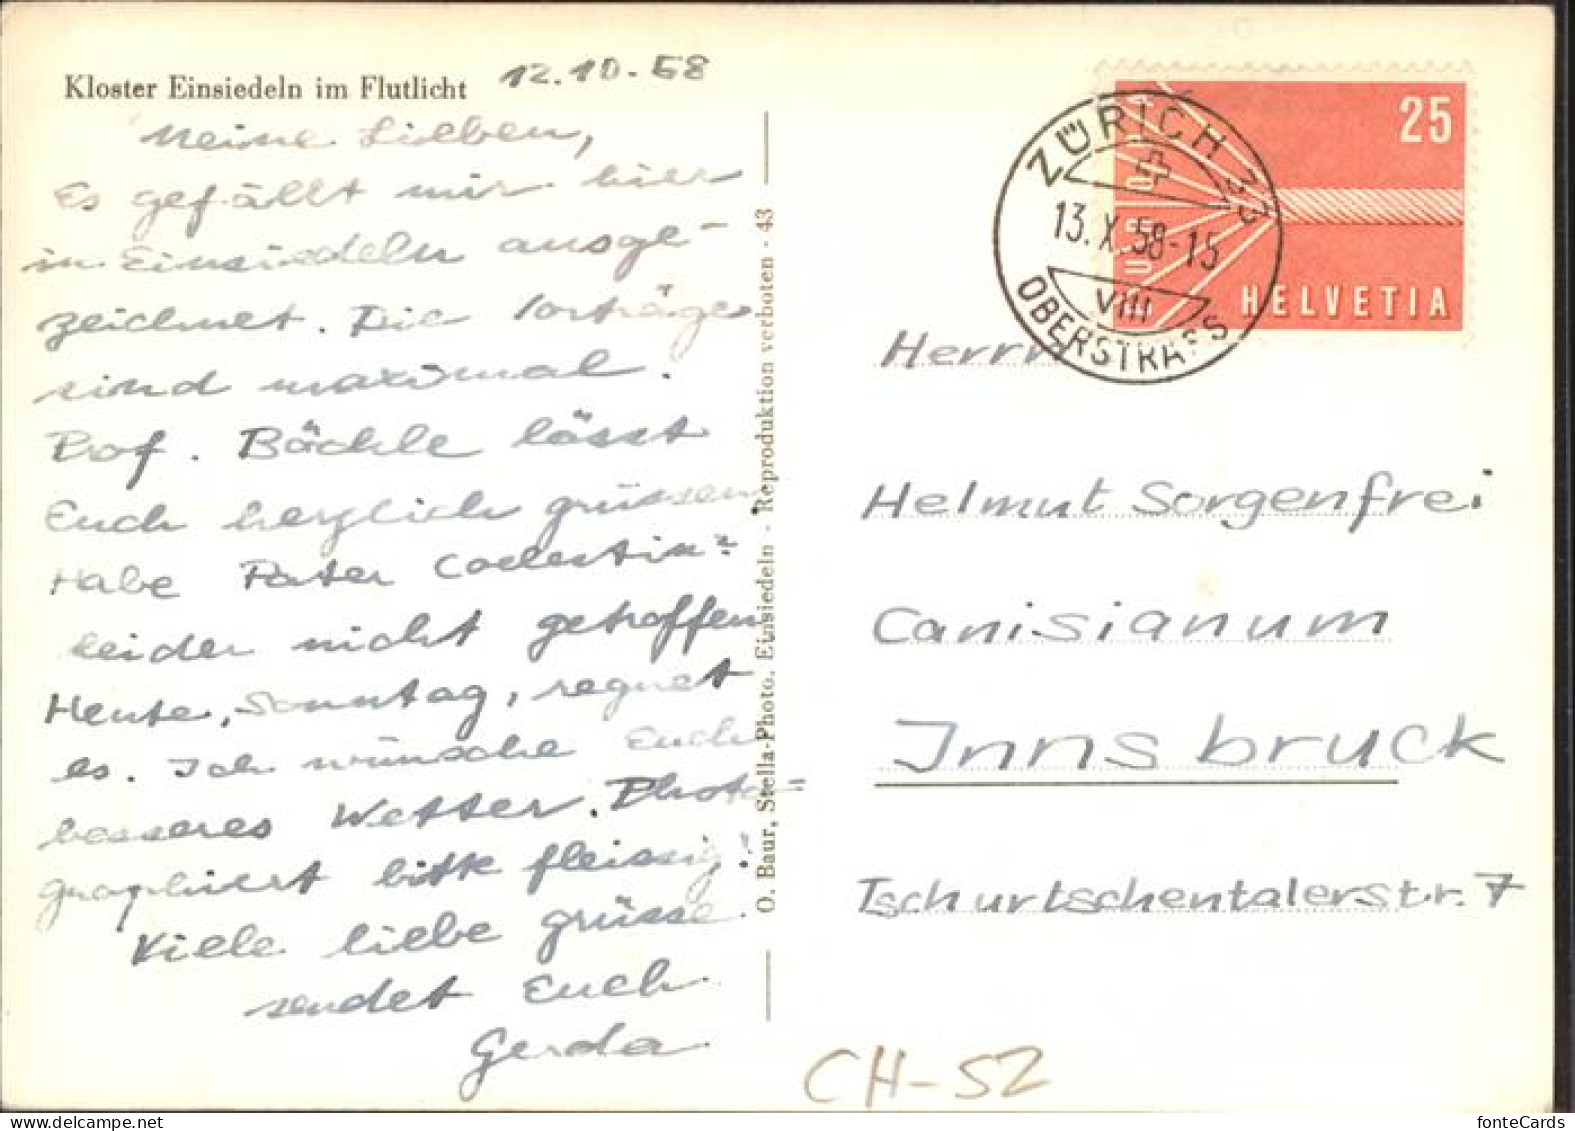 Kloster Einsiedeln im Flutlicht
12.10.58
Meine Lieben,
Es gefällt mir hier
in Einsiedeln ausge-
zeichnet. Die Vorträge
sind maximal.
Prof. Bächle lässt
Euch herzlich grüssen
Habe Pater Coelestin
leider nicht getroffen
Heute, Sonntag, regnet
es. Ich wünsche Euch
besseres Wetter. Photo=
graphiert bitte fleissig!
Viele liebe grüsse
sendet Euch
Gerda
O. Baur, Stella-Photo, Einsiedeln - Reproduktion verboten - 43
25
HELVETIA
ZÜRICH 33
13.X.58-15
VIII
OBERSTRASS
Herrn
Helmut Sorgenfrei
Canisianum
Innsbruck
Tschurtschentalerstr. 7
CH-52
fonteCards